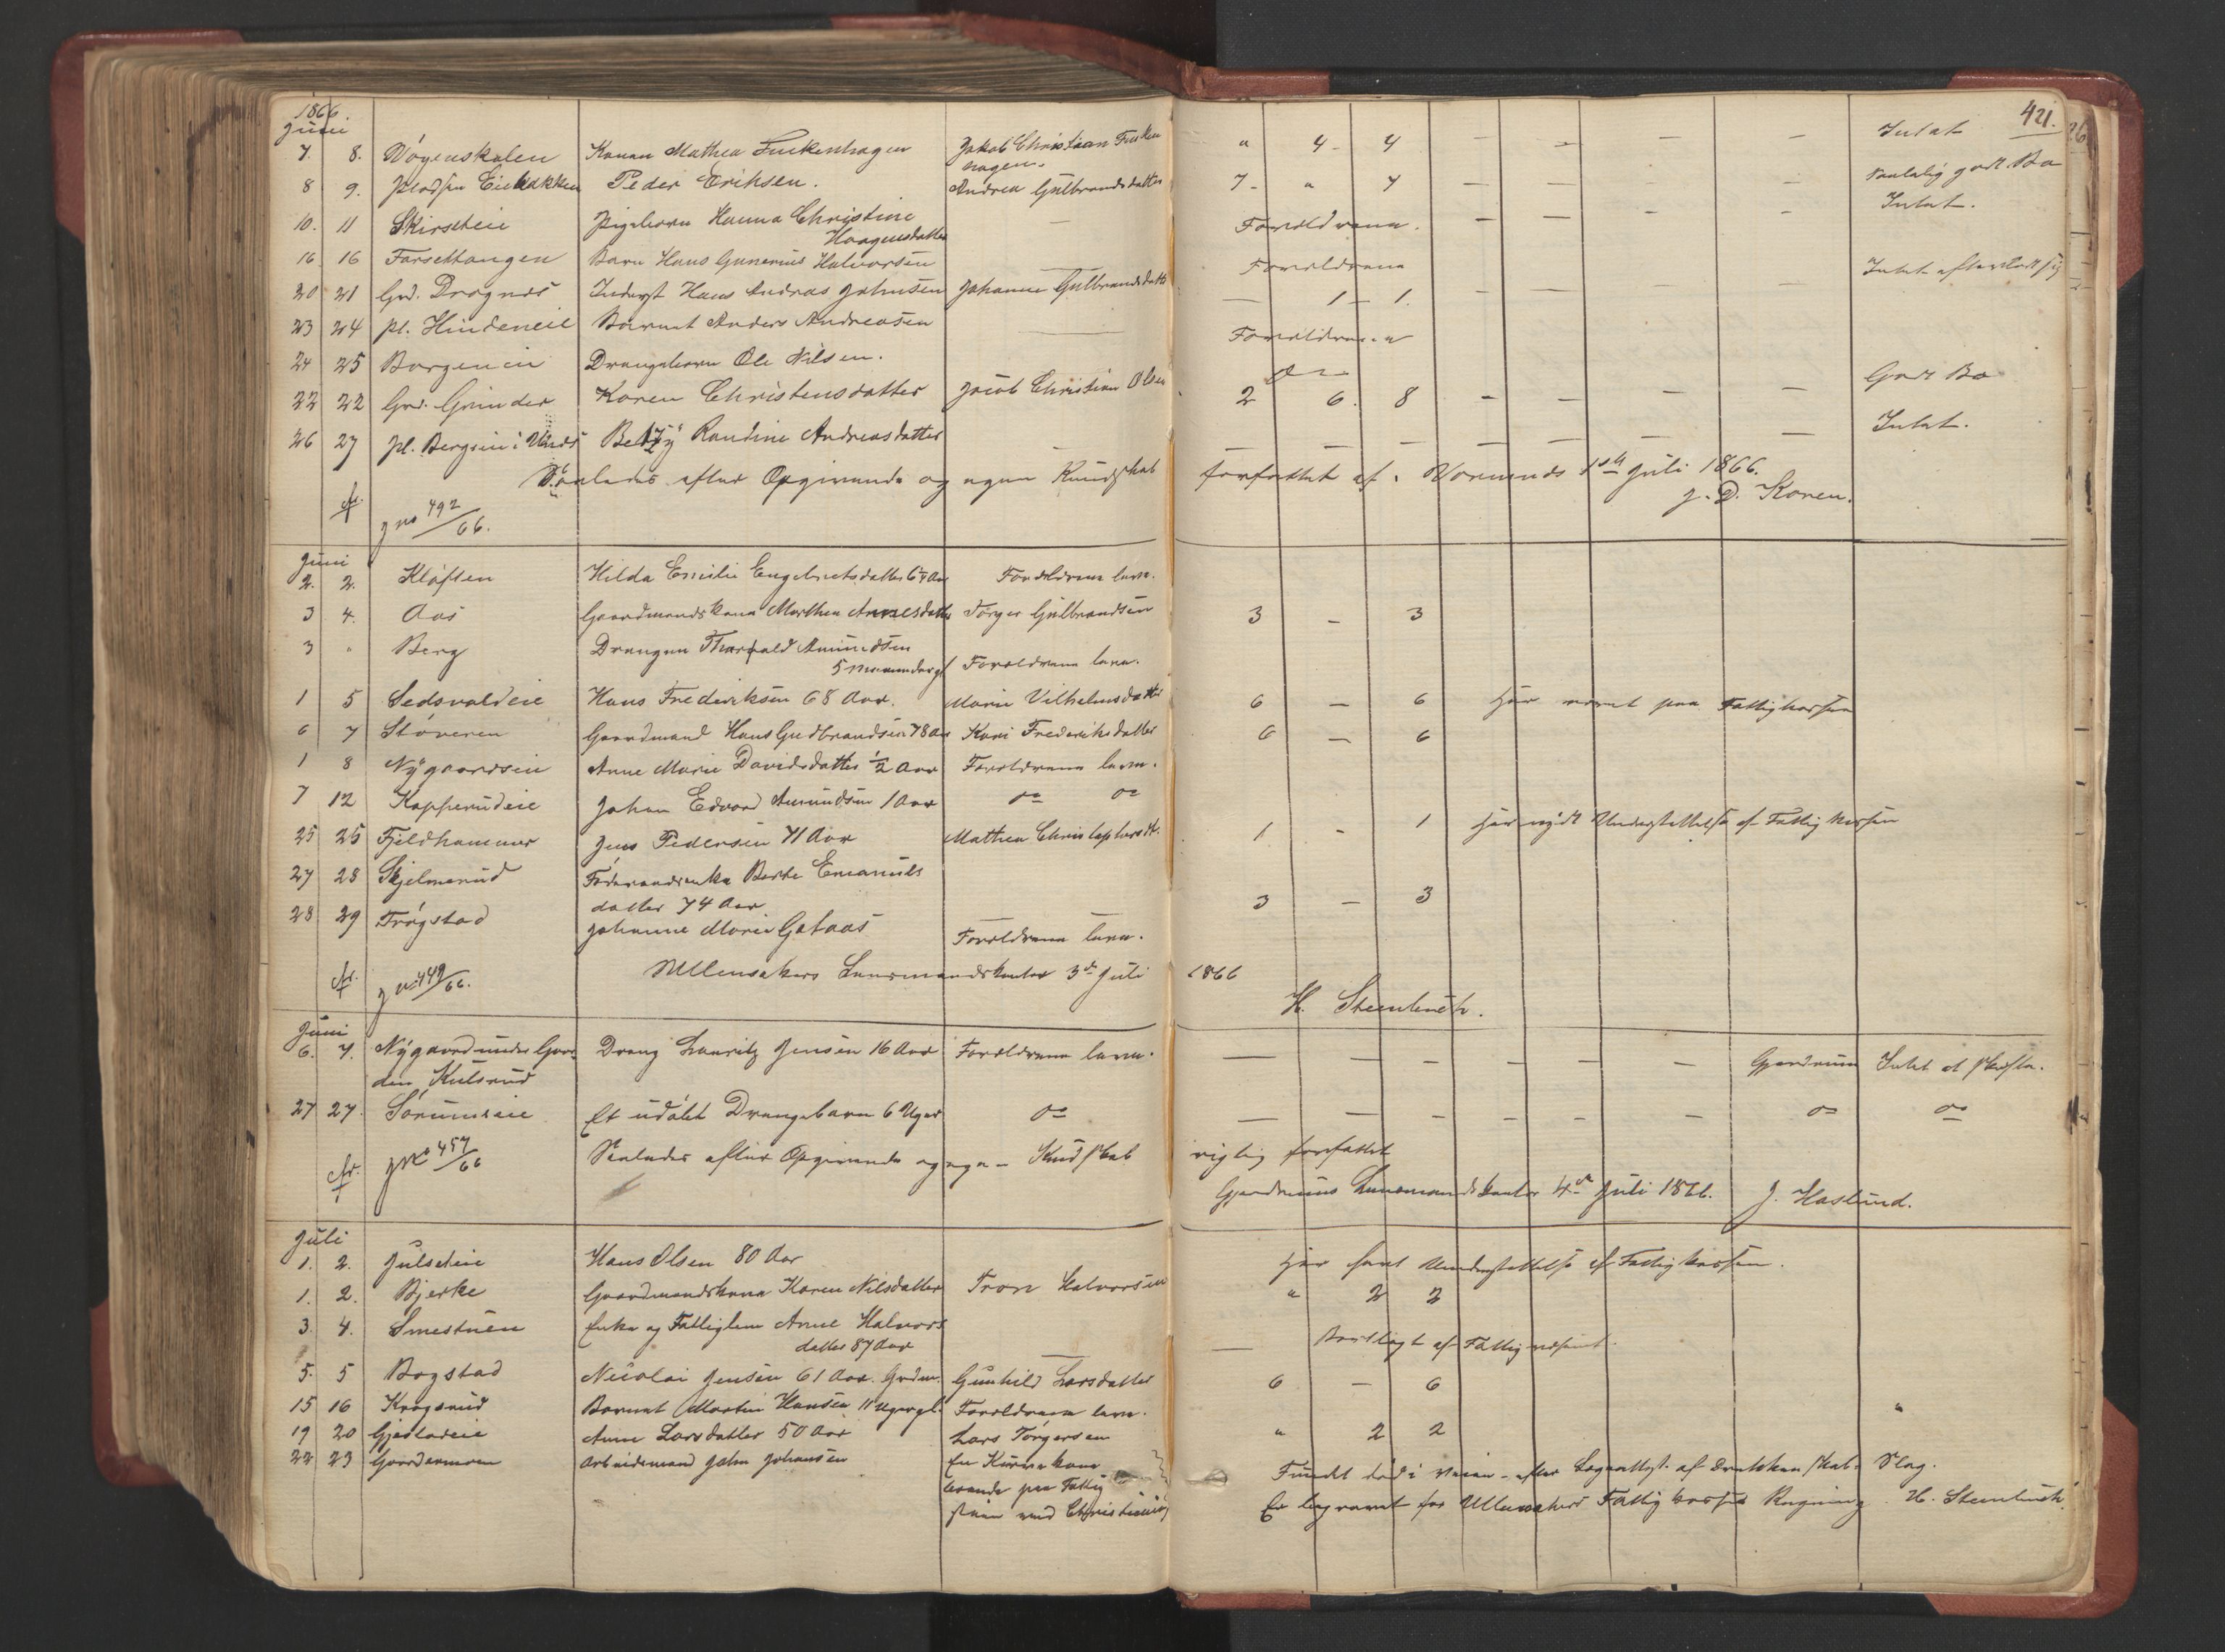 1866.
421
Juni
7. 8. Vøyenskalen Konen Mathea Fuckenhagen Jakob Christian Fucken „ 4 - 4 — — — — Intet
hagen.
8 9. pladsen Eiebakken Peder Eriksen. Andrea Gulbrandsdatter 7 - „ 7 — — — — godt Bo
10. 11 Skirseteie Pigebarn Hanna Christine — Forældrene. — — — — Intet.
Haagensdatter
16 16 Farsethangen Barn Hans Gunerius Halvorsen — Forældrene
20 21 Grd. Dragnes Inderst Hans Andreas Johnsen Johanne Gulbrandsdatter — 1 — 1. — — — — Intet efterladt sig
23 24 pl. Hindeneie Barnet Anders Andreasen — Forældrene
24 25 Borgeneie Drengebarn Ole Nilsen. do
22 22 Grd. Grinder Karen Christensdatter Jacob Christian Olsen 2 6. 8 — — — — Godt Bo
26 27 pl. Bergseie i Unds Betzy Randine Andreasdatter — — — — — — — Intet.
Saaledes efter Opgivende og egen Kundskab forfattet af. Vormnæs 1ste Juli 1866.
J. D. Koren.
cfr. Jno 492/66.
Juni
2. 2. Kløften Hilda Emilie Engebretsdatter 6½ Aar Forældrene leve.
3 4. Aas Gaardmandskone Marthea Annesdatter Torger Gulbrandsen 3 — 3
3 „ Berg Drengen Thorvald Amundsen
5 Maaneder gl Forældrene leve.
1 5 Sedsvoldeie Hans Frederiksen 68 Aar. Marie Vilhelmsdatter 6 — 6 Har været paa Fattigkassen
6 7 Støveren Gaardmand Hans Gudbrandsen 78 Aar Kari Frederiksdatter 6 — 6
1 8 Nygaardseie Anne Marie Davidsdatter ½ Aar Forældrene leve.
7 12 Kopperudeie Johan Edvard Amundsen 1 Aar do do
25 25 Fjeldhammer Jens Pedersen 71 Aar Mathea Christophersdt. 1 - 1 Har nydt Understøttelse af Fattigkassen
27 28 Skjelmerud Føderaadsenke Berte Emanuels
datter 74 Aar 3 — 3
28 29 Frøgstad Johanne Marie Gataas Forældrene leve.
Ullensakers Lensmandskontor 3de Juli 1866
cfr. Jno 449/66. H. Steenbuch.
Juni
6. 7. Nygaard under Gaar- Dreng Lauritz Jensen 16 Aar Forældrene leve. — — — — — — Gjerdrum Intet at skifte.
den Kulsrud
27 27. Sørumseie Et udøbt Drengebarn 6 Uger do — — — — — — do do
cfr. Jno 457/66 Saaledes efter Opgivende og egen Kundskab rigtig forfattet
Gjerdrums Lensmandskontor 4de Juli 1866. J. Haslund.
Juli
1. 2. Julseteie Hans Olsen 80 Aar Har havt Understøttelse af Fattigkassen.
1. 2. Bjerke Gaardmandskone Karen Nilsdatter Tron Halvorsen „ 2 2
3. 4. Smestuen Enke og Fattiglem Anne Halvors
datter 87 Aar — — Bortlagt af Fattigvæsenet.
5. 5 Bogstad Nicolai Jensen 61 Aar. Grdm. Gunhild Larsdatter 6 — 6
15 16 Krogsrud Barnet Martin Hansen 11 Uger gl. Forældrene leve. „
19 20 Gjestadeie Anne Larsdatter 50 Aar Lars Torgersen „ 2 2
22 23 Gardermoen Arbeidsmand John Johansen En Kone Fundet død i Veien - efter Lægeattest af Drukkenskab - Slag.
boende paa Fattig Er begravet for Ullensakers Fattigkasses Regning. H. Steenbuch.
ved Christiania